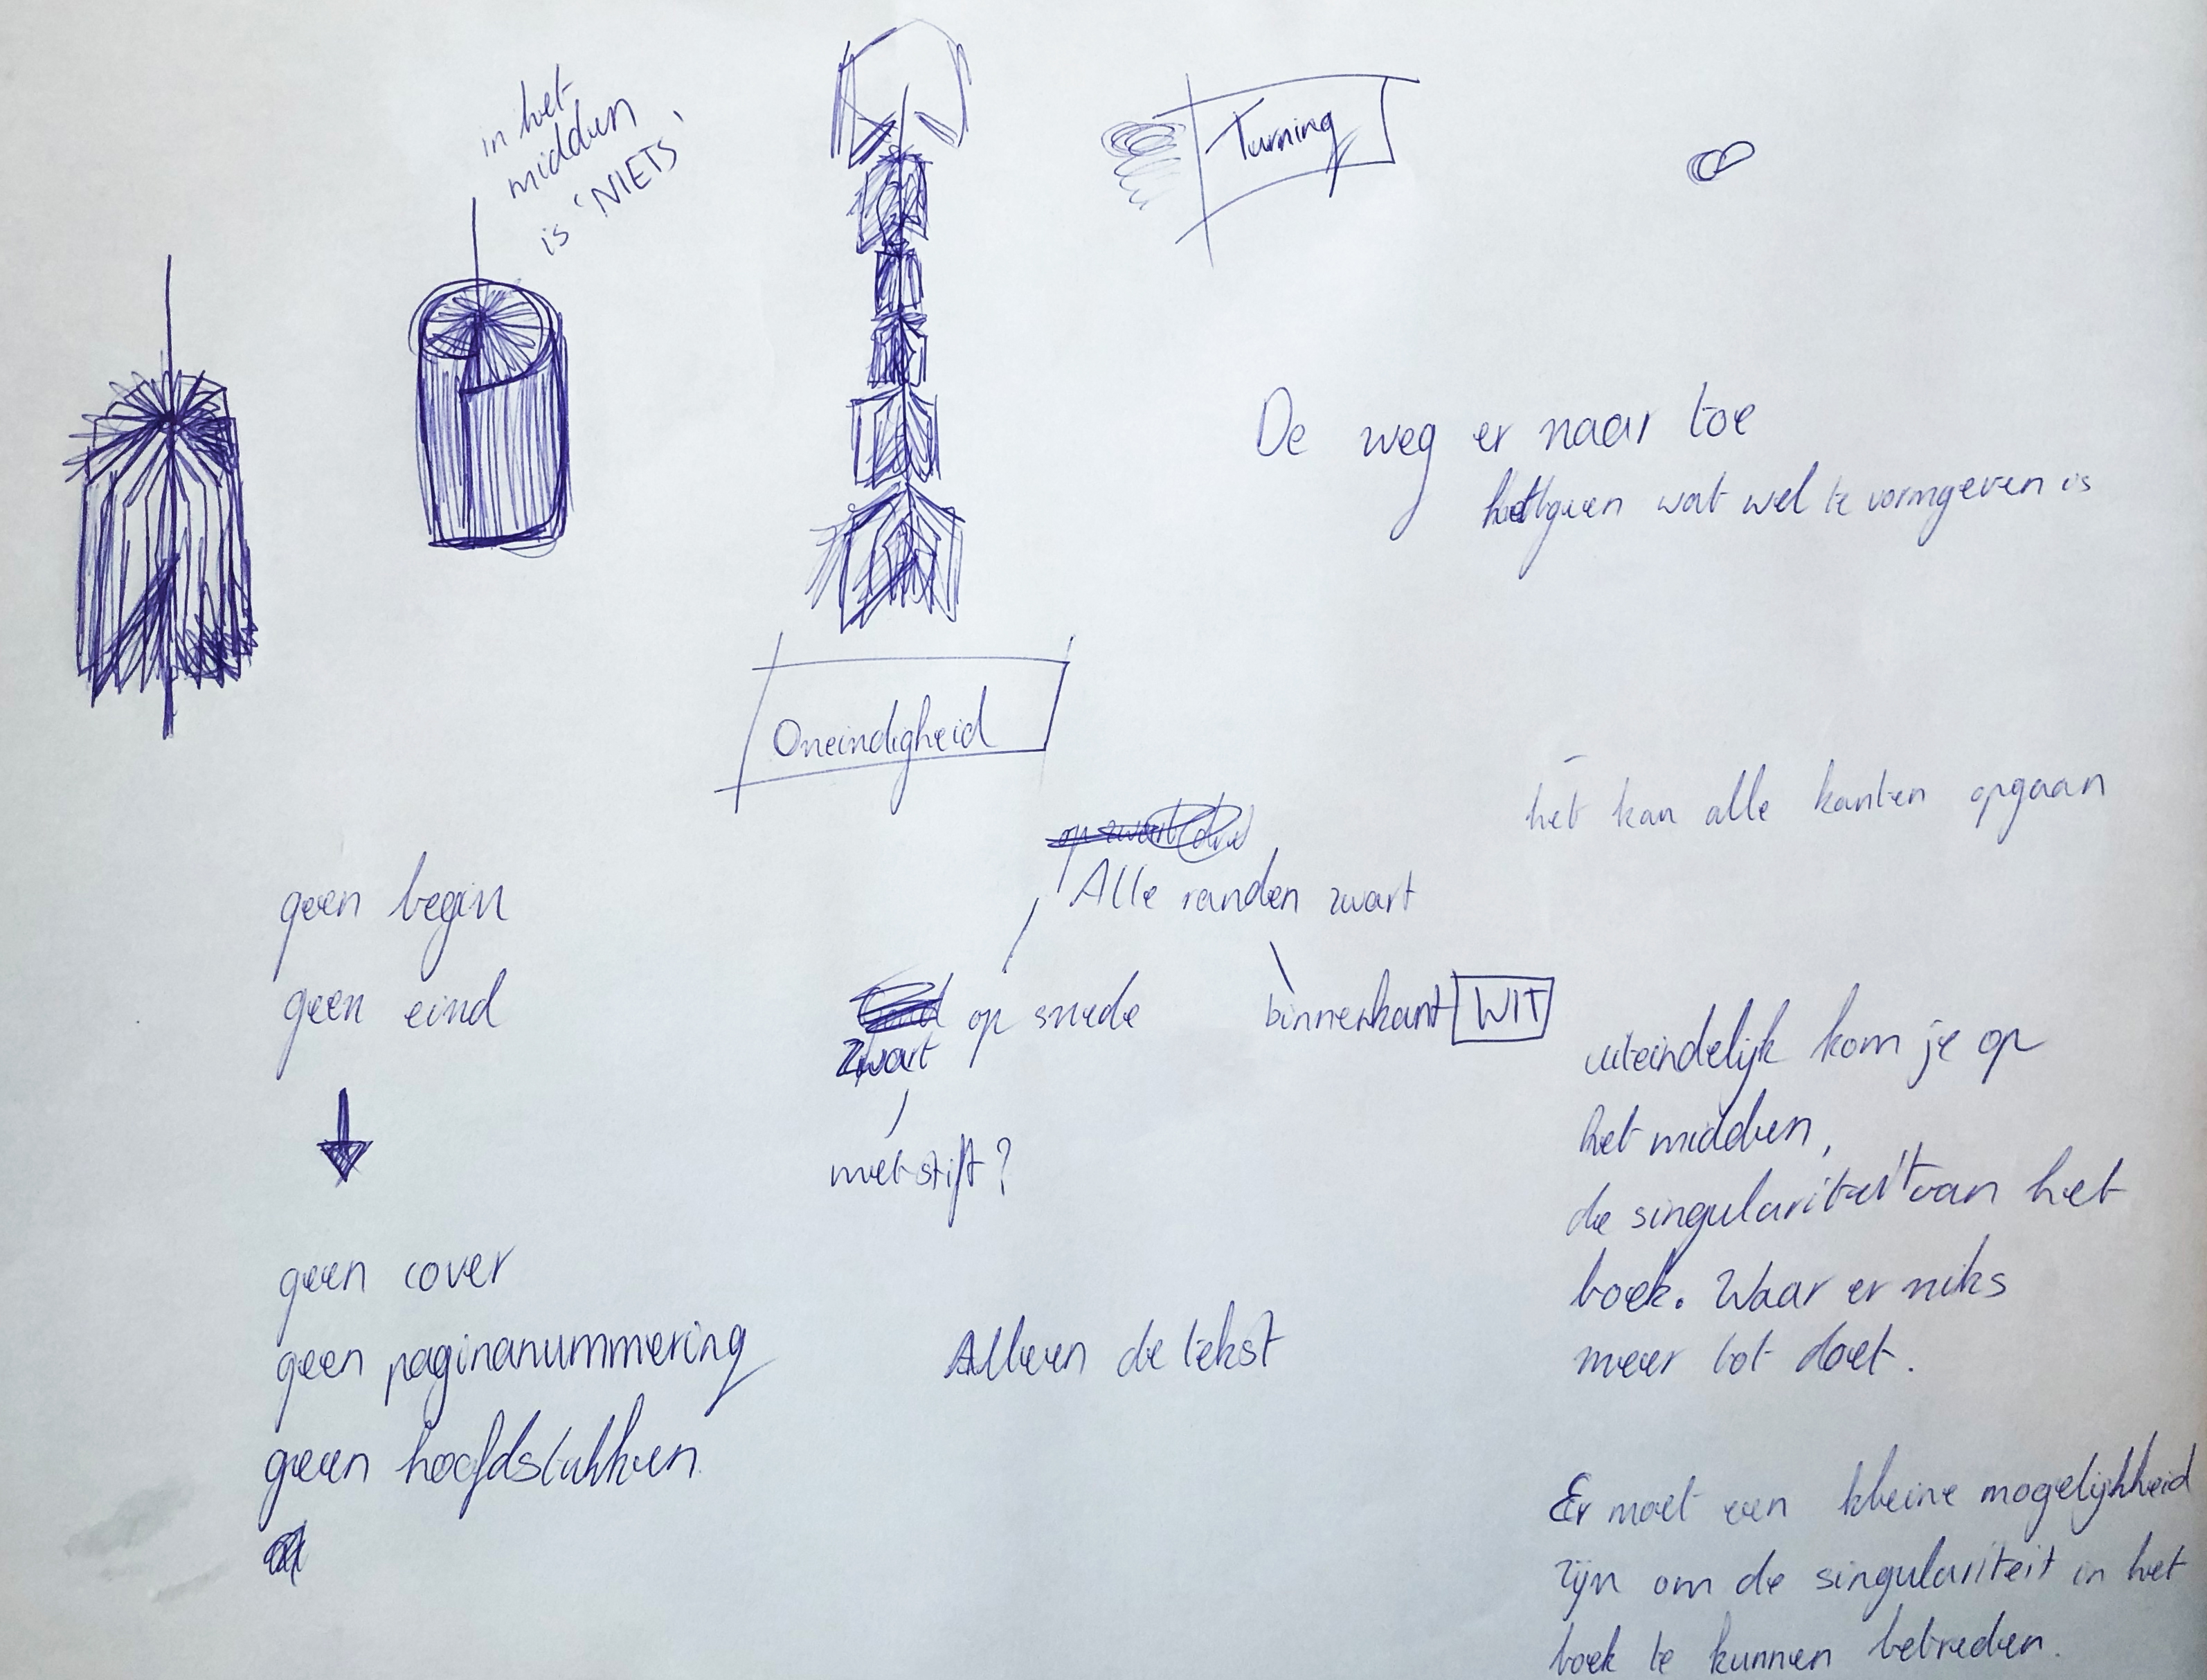 in het
midden
is 'NIETS'
Turning
De weg er naar toe
hetgeen wat wel te vormgeven is
Oneindigheid
het kan alle kanten opgaan
Alle randen zwart
geen begin
geen eind
op snede
zwart
binnenkant WIT
met stift?
uiteindelijk kom je op
het midden,
de singulariteit van het
boek. Waar er niks
meer tot doet.
geen cover
geen paginanummering
geen hoofdstukken
Alleen de tekst
Er moet een kleine mogelijkheid
zijn om de singulariteit in het
boek te kunnen betreden.